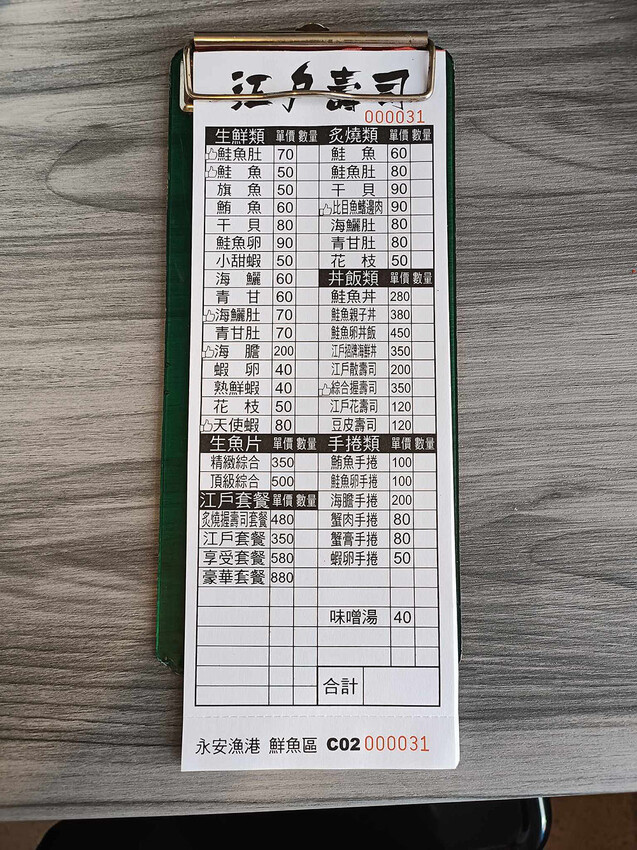 江戶壽司
000031
生鮮類 單價 數量
鮭魚肚 70
鮭魚 50
旗魚 50
鮪魚 60
干貝 80
鮭魚卵 90
小甜蝦 50
海鱺 60
青甘 60
海鱺肚 70
青甘肚 70
海膽 200
蝦卵 40
熟鮮蝦 40
花枝 50
天使蝦 80
生魚片 單價 數量
精緻綜合 350
頂級綜合 500
江戶套餐 單價 數量
炙燒握壽司套餐 480
江戶套餐 350
享受套餐 580
豪華套餐 880
炙燒類 單價 數量
鮭魚 60
鮭魚肚 80
干貝 90
比目魚鰭邊肉 90
海鱺肚 80
青甘肚 80
花枝 50
丼飯類 單價 數量
鮭魚丼 280
鮭魚親子丼 380
鮭魚卵丼飯 450
江戶招牌海鮮丼 350
江戶散壽司 200
綜合握壽司 350
江戶花壽司 120
豆皮壽司 120
手捲類 單價 數量
鮪魚手捲 100
鮭魚卵手捲 100
海膽手捲 200
蟹肉手捲 80
蟹膏手捲 80
蝦卵手捲 50
味噌湯 40
合計
永安漁港 鮮魚區 C02 000031